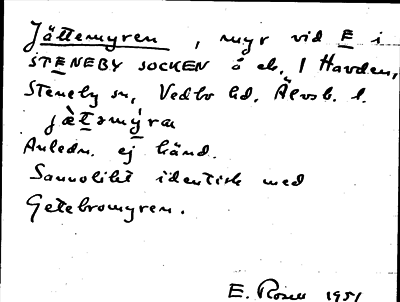 Jättemyren, myr vid E i
STENEBY SOCKEN å ek. 1 Havden,
Steneby sn, Vedbo hd, Älvsb. l.
jätəmýra
Anledn. ej känd.
Sannolikt identisk med
Getebromyren.
E. Rosell 1951